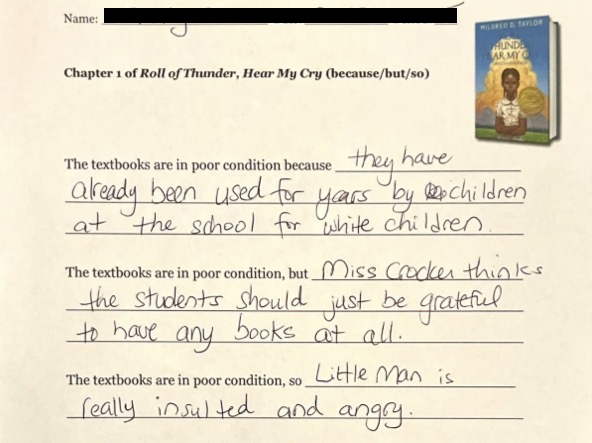 Name:
MILDRED D. TAYLOR
Chapter 1 of Roll of Thunder, Hear My Cry (because/but/so)
The textbooks are in poor condition because they have
already been used for years by children
at the school for white children.
The textbooks are in poor condition, but Miss Crocker thinks
the students should just be grateful
to have any books at all.
The textbooks are in poor condition, so Little Man is
really insulted and angry.